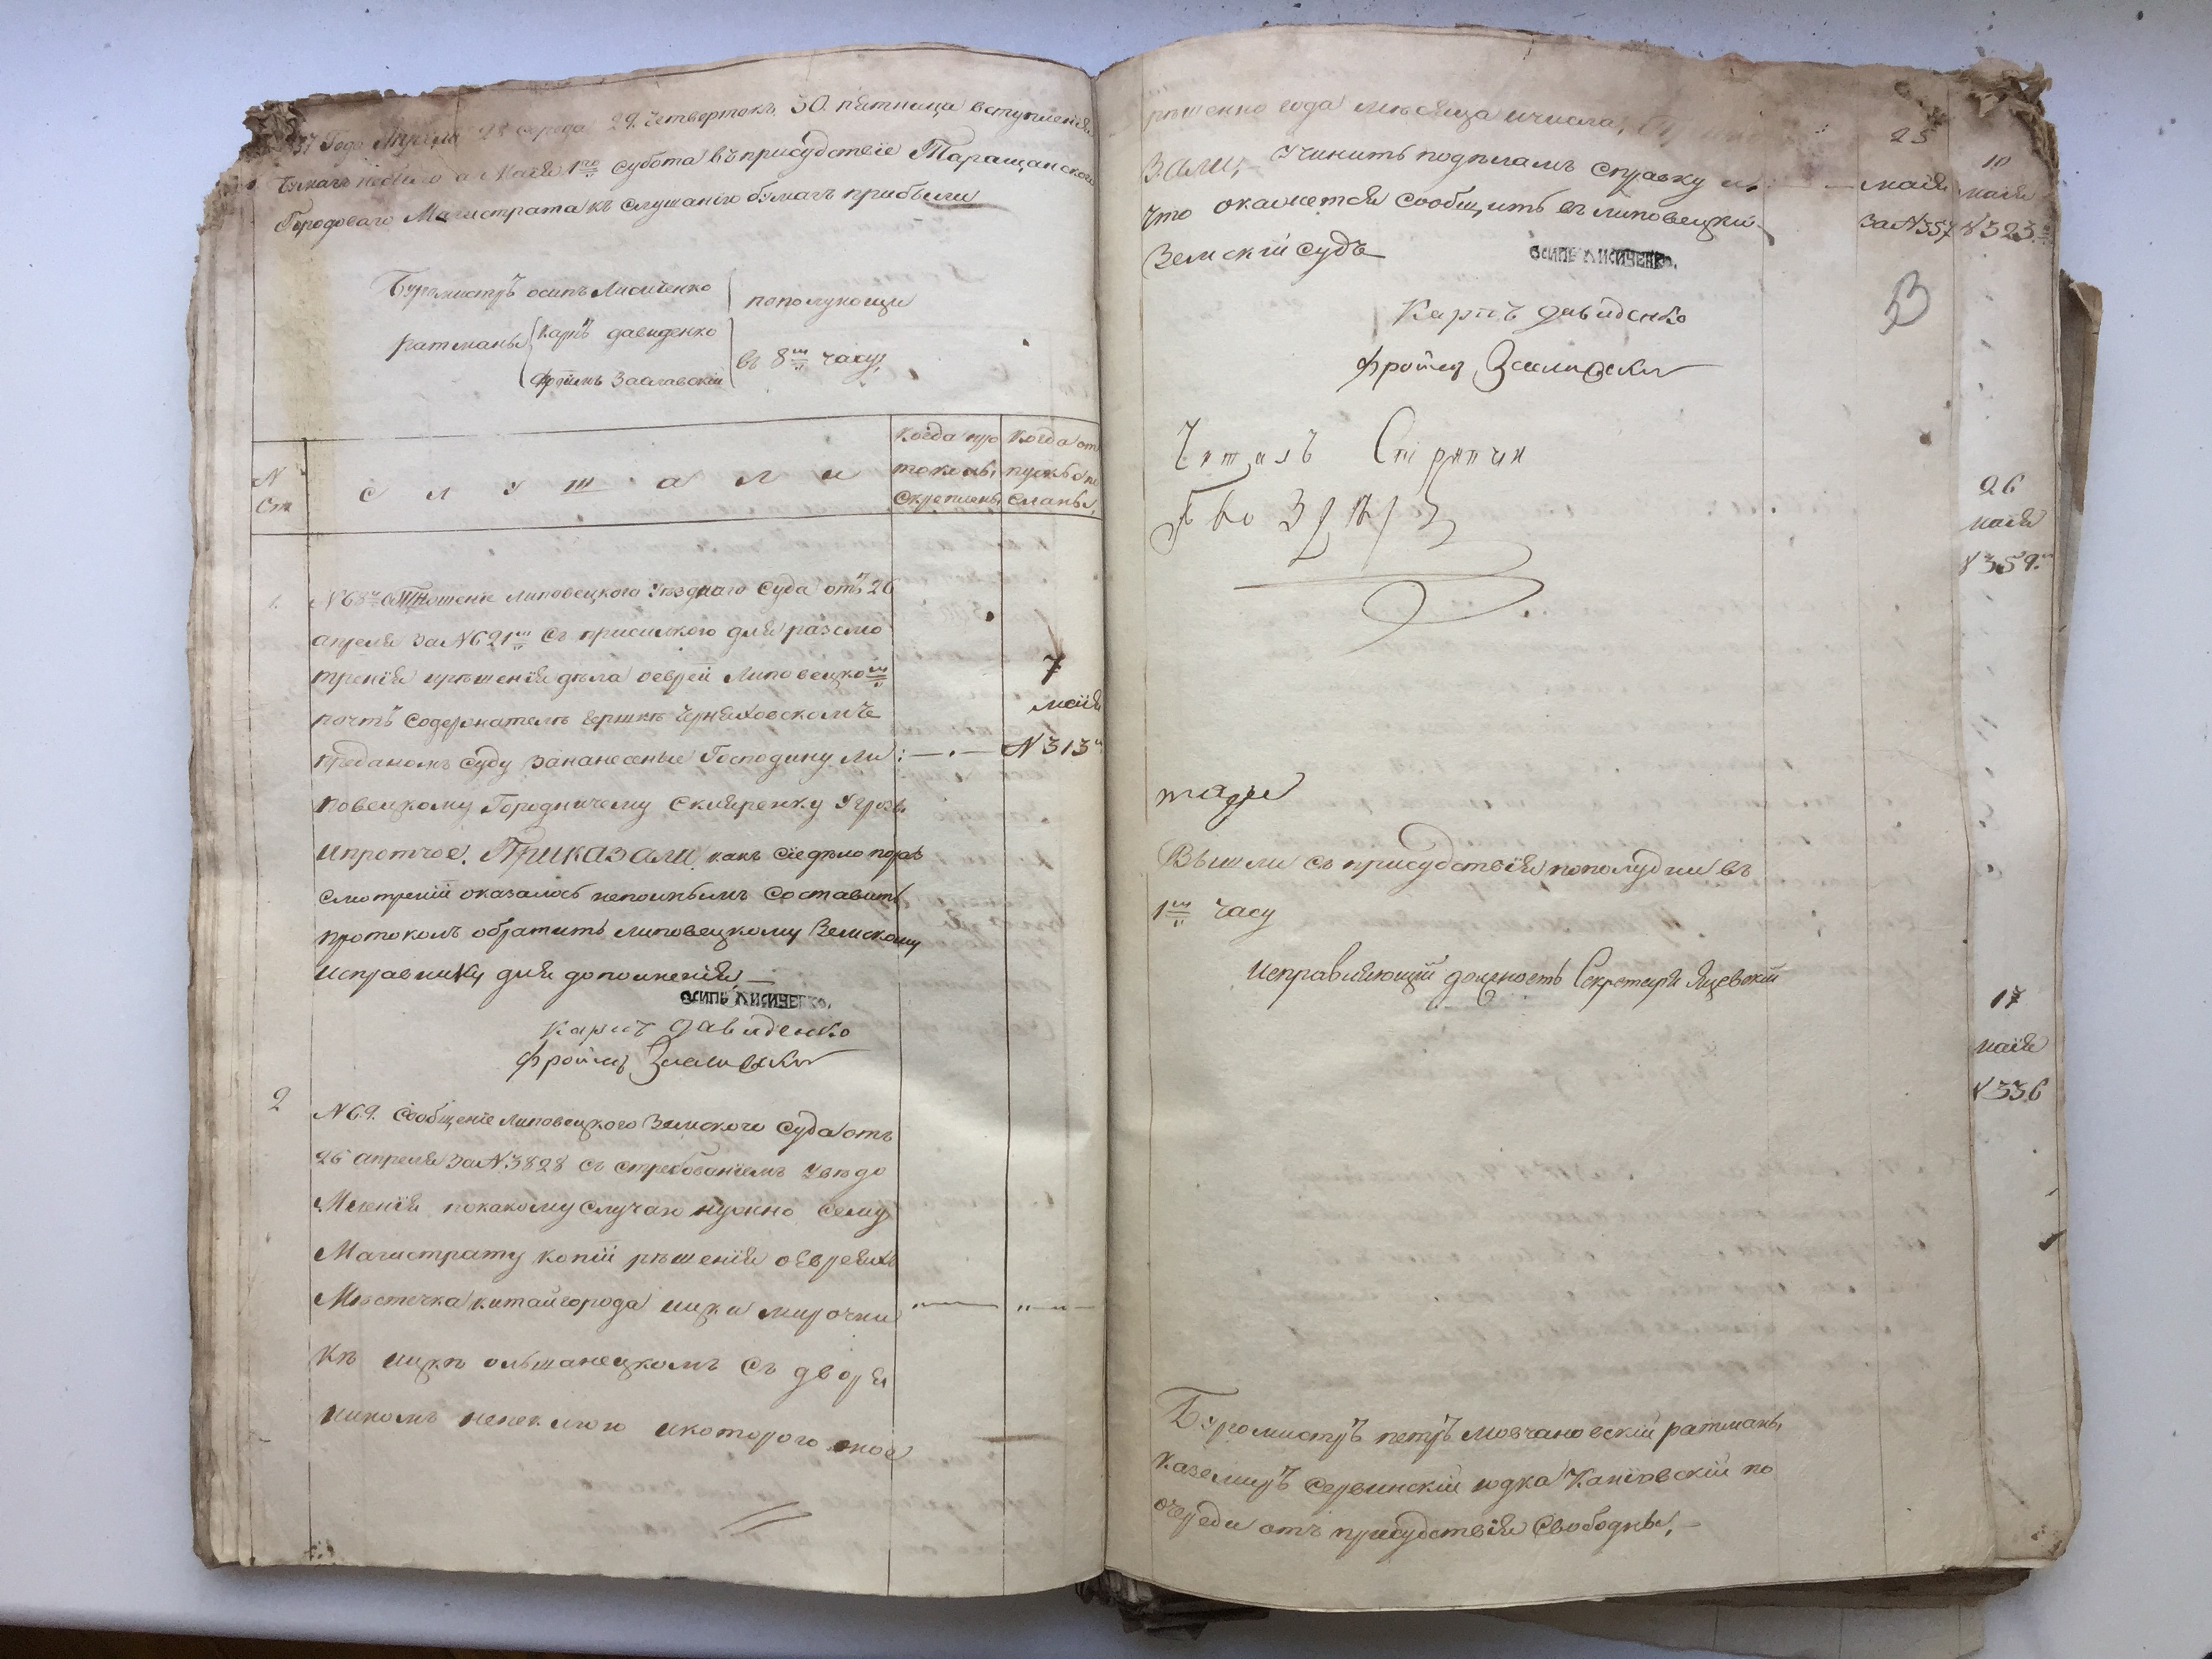 37 Года Апреля 28 середа 29. Четвертокъ 30. пятница вступленія
бумагъ небыло а Маія 1го субота въ присудствіе Таращанскаго
Городоваго Магистрата къ слушанію бумагъ прибыли
Бурмистръ осипъ Лисиченко
пополуночи
ратманы карпъ давиденко
въ 8м часу,
Фроимъ Заславскій
N
Ст
с л у ш а л и
Когда про
токолы
скреплены
Когда от
пуски
сланы,
1.
N 68. Отношеніе липовецкого Уезднаго Суда отъ 26
апреля за N 621м съ присилкою для разсмо
тренія ирешенія дела оеврей Липовецкой
почтъ Содержателе Гершке Черняховскомъ
преданомъ суду зананесеные Господину Ли
повецкому Городничему Скляренку Угрозъ
ипротчое. Приказали какъ сіе дело поразъ
смотреніи оказалось неполнымъ Составить
протоколъ обратить липовецкому Земскому
исправнику для дополненія,
7
маія
N 313
ОСИПЪ ЛИСИЧЕНКО.
Карпъ Давиденко
Фроимъ Заславски
2
N 69. Сообщеніе липовецкого Земского Суда отъ
26 апреля за N 3828 съ стребованіемъ уведо
мленія покакому случаю нужно сему
Магистрату копіи решенія оевреяхъ
Местечка китайгорода ицки мирочни
ке ицке ольшанецкомъ съ дворя
никомъ
икоторого
решенно года месяца ичисла,
зали, Учинить поделамъ справку и
что окажется сообщить въ липовецкій
Земскій судъ
25
маія
за N 357
10
маія
N 323
ОСИПЪ ЛИСИЧЕНКО.
Карпъ Давиденко
Фроимъ Заславски
Читалъ Стряпчи
26
маія
N 359.
Вышли съ присудствія пополудни въ
1м часу
Исправляющій должность Секретаря Яцевскій
17
маія
N 336
Бурмистръ петръ мовчановскій ратманы
Каземиръ Сервинскій юдка Каніовскій по
очереди отъ присудствія Свободны,